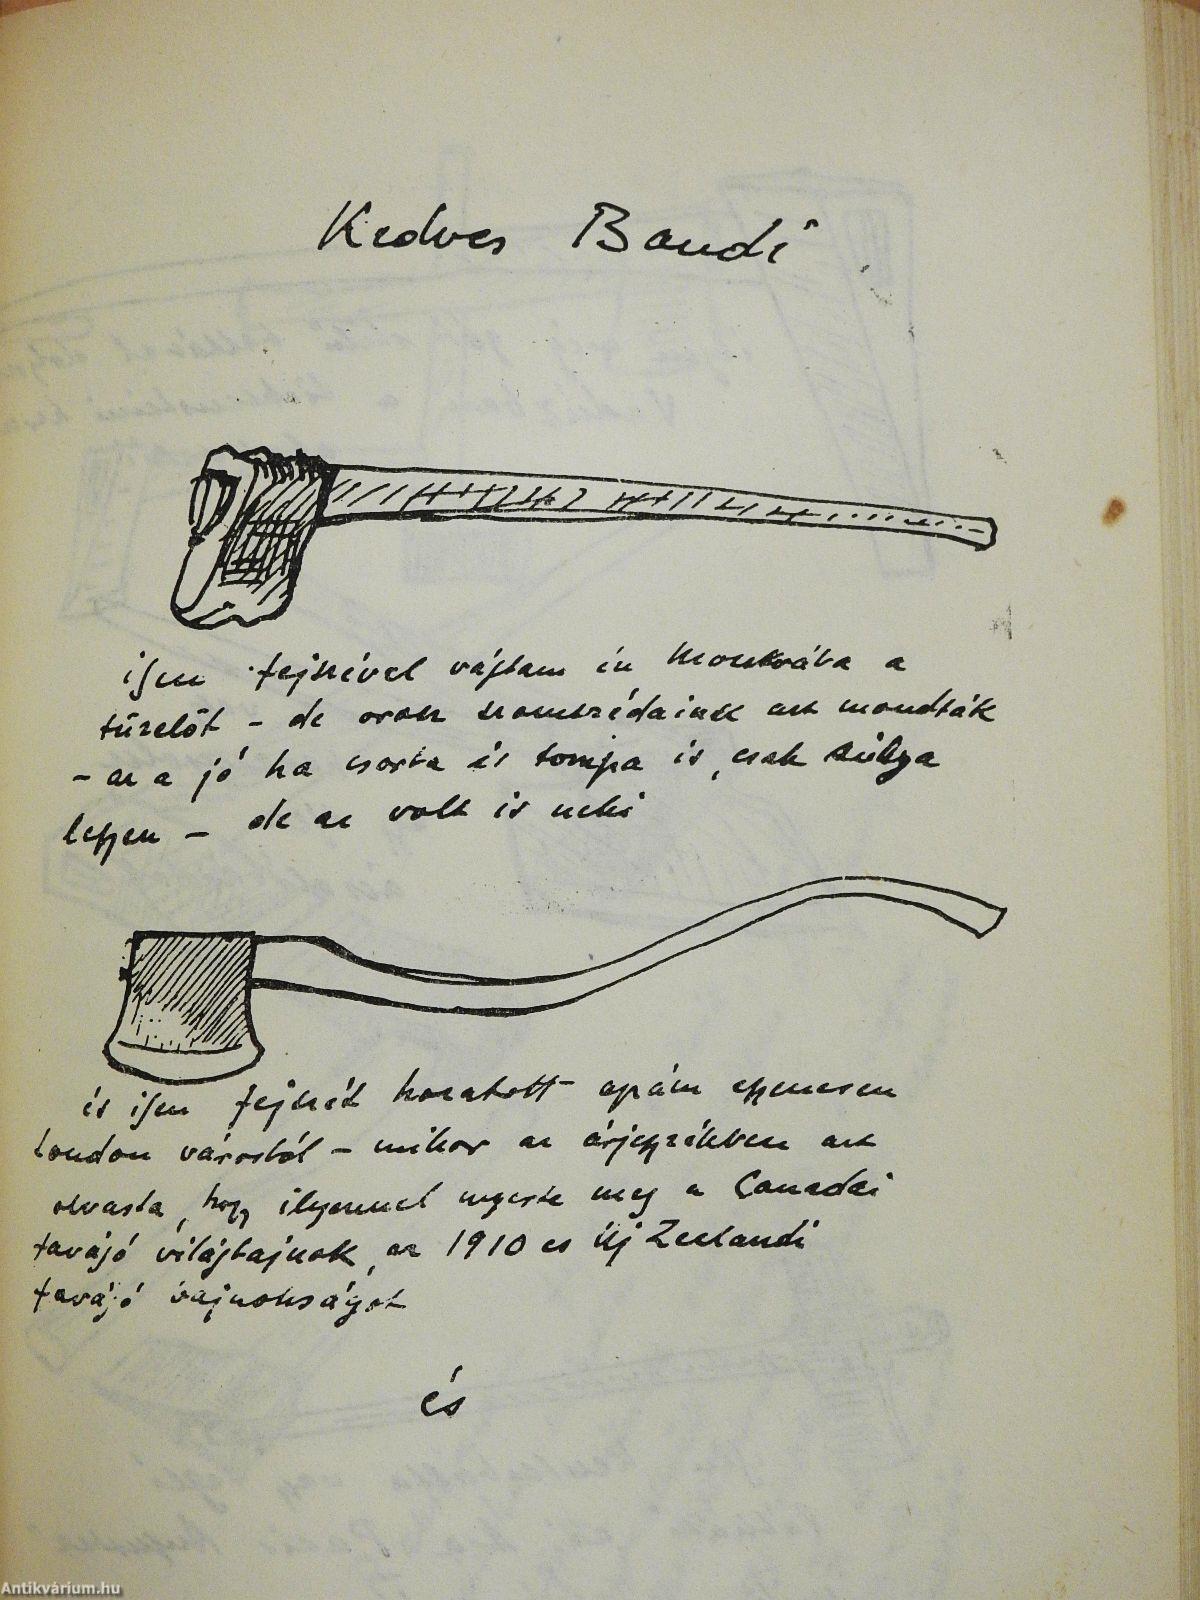 Kedves Bandi
ilyen fejszével vágtam én Moszkvába a
tüzelőt – de orosz szomszédaink azt mondták
– az a jó ha csorba és tompa is, csak súlya
legyen – de az volt is neki
és ilyen fejszét hozatott apám egyenesen
London városból – mikor az árjegyzékben azt
olvasta, hogy ilyennel nyerte meg a Canadai
favágó világbajnok, az 1910 es Új Zeelandi
favágó bajnokságot
és
Antikvárium.hu